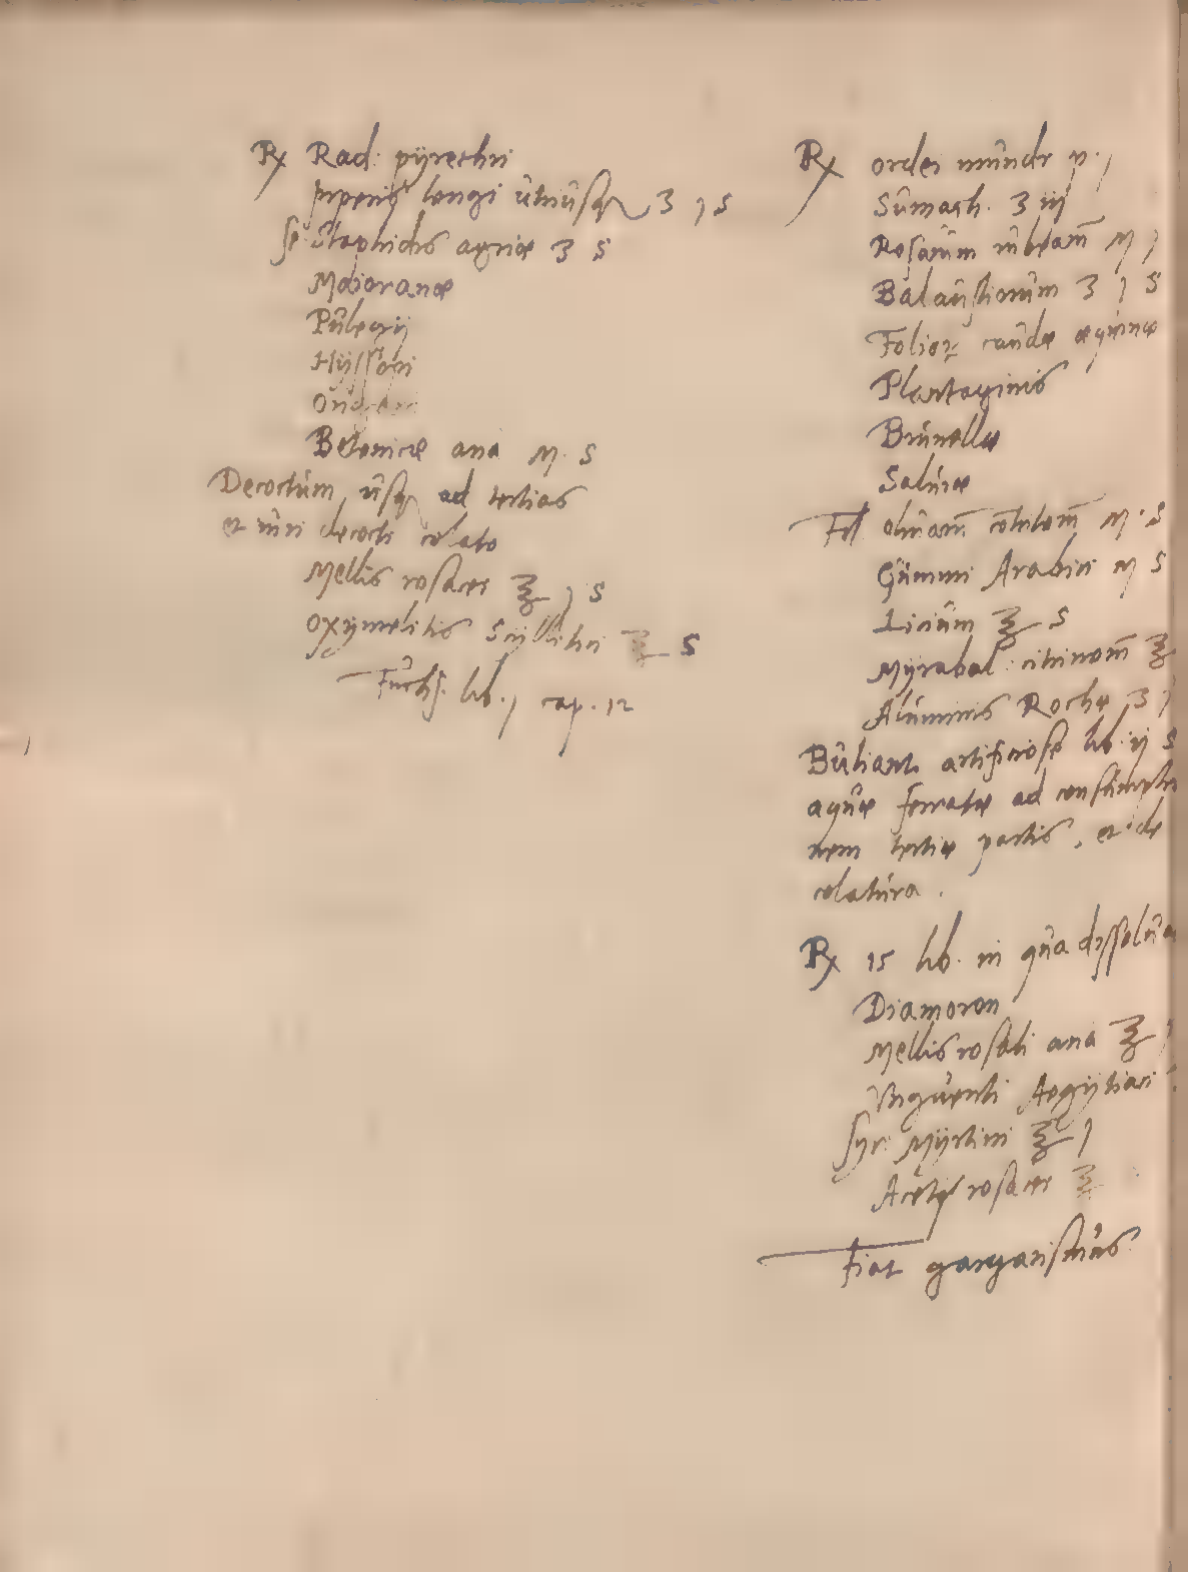 ℞ Rad: pÿrethri
piperis longi utriusq ʒ j s
se. Staphidis agriæ ʒ s
Maioranæ
Pulegij
Hÿssopi
Origani
Betonicæ ana M. s
Decoctum usq ad tertias
et uni decocti colato
Mellis rosacei ℥ j s
oxÿmelitis Scÿllitici ℥ s
Fuchs. lib. j cap. 12
℞ ordei mundi p. j
Sumach. ʒ iij
Rosarum rubear̄ M j
Balaustiorum ʒ j s
Folioꝝ caudæ equinæ
Plantaginis
Brunellæ
Salviæ
Fol olivar̄ M. s
Gummi Arabici M s
Licium ℥ s
Mÿrabal: citrinor̄ ℥
Aluminis Rochæ ʒ j
Buliant artificiose lib. ij s
aquæ ferratæ ad consumptio
nem tertiæ partis, et de
colatura.
℞ 15 lib. in qua dissolva
Diamoron
Mellis rosati ana ℥ j
Unguenti Aegÿtiaci
Sÿr: Mÿrtini ℥ j
Aceti rosacei ℥
Fiat gargarismus